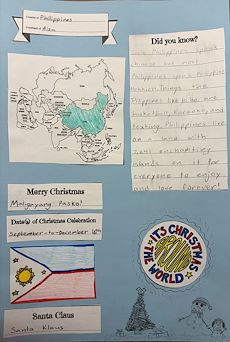 Philippines
Asia
Did you know?
Philippines speak
chinese but most
Philippines speak
Things the
Pilipines like to do are
basketball, Karaoke, and
texting. Philippines live
on a land with
islands on it for
everyone to enjoy
and love forever!
Merry Christmas
Maligayang Pasko!
Date(s) of Christmas Celebration
September-to-December 16th
Santa Claus
Santa Klaus
IT'S CHRISTMAS
AROUND
THE WORLD